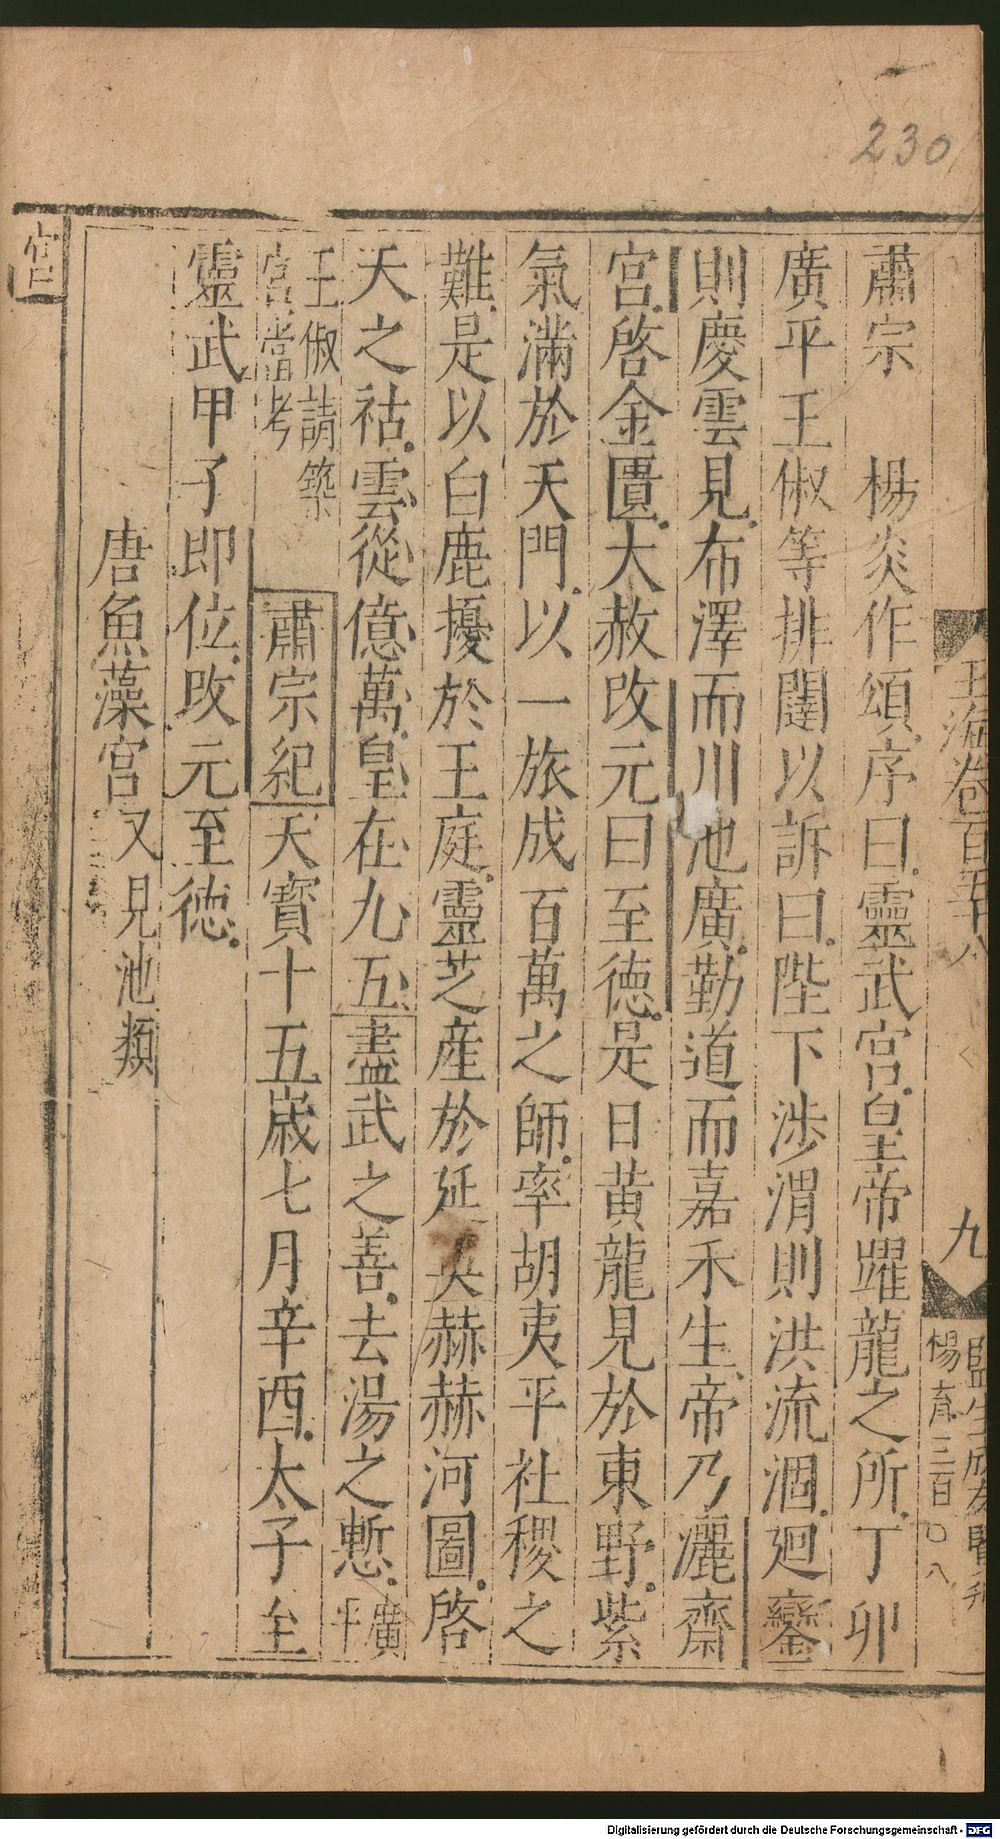 230
玉海卷百五十八
九
楊育三百〇八
肅宗　楊炎作頌序曰靈武宮皇帝躍龍之所丁卯
廣平王俶等排闥以訴曰陛下涉渭則洪流涸廻鑾
則慶雲見布澤而川池廣勤道而嘉禾生帝乃灑齋
宮啓金匱大赦改元曰至德是日黄龍見於東野紫
氣滿於天門以一旅成百萬之師率胡夷平社稷之
難是以白鹿擾於王庭靈芝産於延英赫赫河圖啓
天之祜雲從億萬皇在九五盡武之善去湯之慙廣平
王俶請築
宮當考
肅宗紀天寳十五歳七月辛酉太子至
靈武甲子即位改元至德
唐魚藻宮又見池類
宫
Digitalisierung gefördert durch die Deutsche Forschungsgemeinschaft - DFG